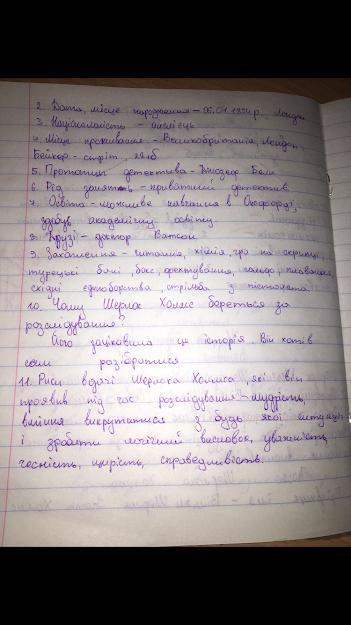 2. Дата, місце народження - 06.01.1854 р. Лондон
3. Національність - англієць
4. Місце проживання - Великобританія, Лондон,
Бейкер-стріт, 221б
5. Прототип детектива - Джозеф Белл
6. Рід занять - приватний детектив
7. Освіта - можливе навчання в Оксфорді,
здобув академічну освіту
8. Друзі - доктор Ватсон
9. Захоплення - читання, хімія, гра на скрипці,
турецькі бані, бокс, фехтування, плавання
східні єдноборства, стрільба з пістолета
10. Чому Шерлок Холмс береться за
розслідування?
Його зацікавила ця історія. Він хотів
сам розібратися
11. Риси вдачі Шерлока Холмса, які він
проявив під час розслідування - мудрість,
вміння викрутатися з будь якої ситуації
і зробити логічний висновок, уважність,
чесність, щирість, справедливість.